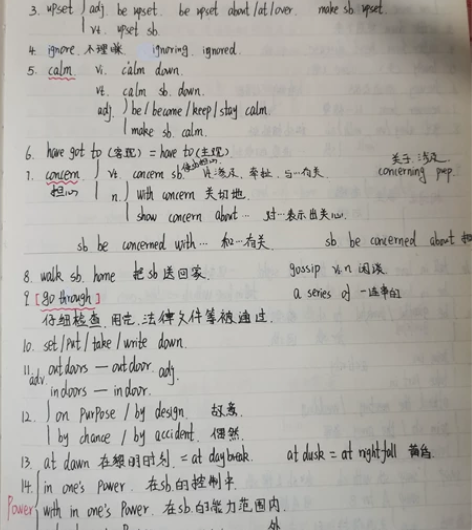 3. upset adj. be upset. be upset about/at/over. make sb upset.
vt. upset sb.
4. ignore. 不理睬 ignoring. ignored.
5. calm vi. calm down.
vt. calm sb. down.
adj. be/become/keep/stay calm
make sb. calm.
6. have got to (客观) = have to (主观)
7. concern vt. concern sb. 使担心 涉及, 牵扯, 与…有关 关于, 涉及
担心 n. with concern 关切地 concerning prep.
show concern about … 对…表示出关心.
sb be concerned with … 和…有关 sb be concerned about
8. walk sb. home 把sb送回家 gossip vi n 闲谈
9. [go through] a series of 一连串的
仔细检查. 用完. 法律文件等被通过.
10. set/put/take/write down.
11. adv. outdoors — outdoor. adj.
indoors — indoor.
12. on purpose / by design. 故意
by chance / by accident. 偶然
13. at dawn 在黎明时刻. = at daybreak. at dusk = at nightfall 黄昏.
14. in one's power. 在sb.的控制中.
Power with in one's Power. 在sb.的能力范围内.